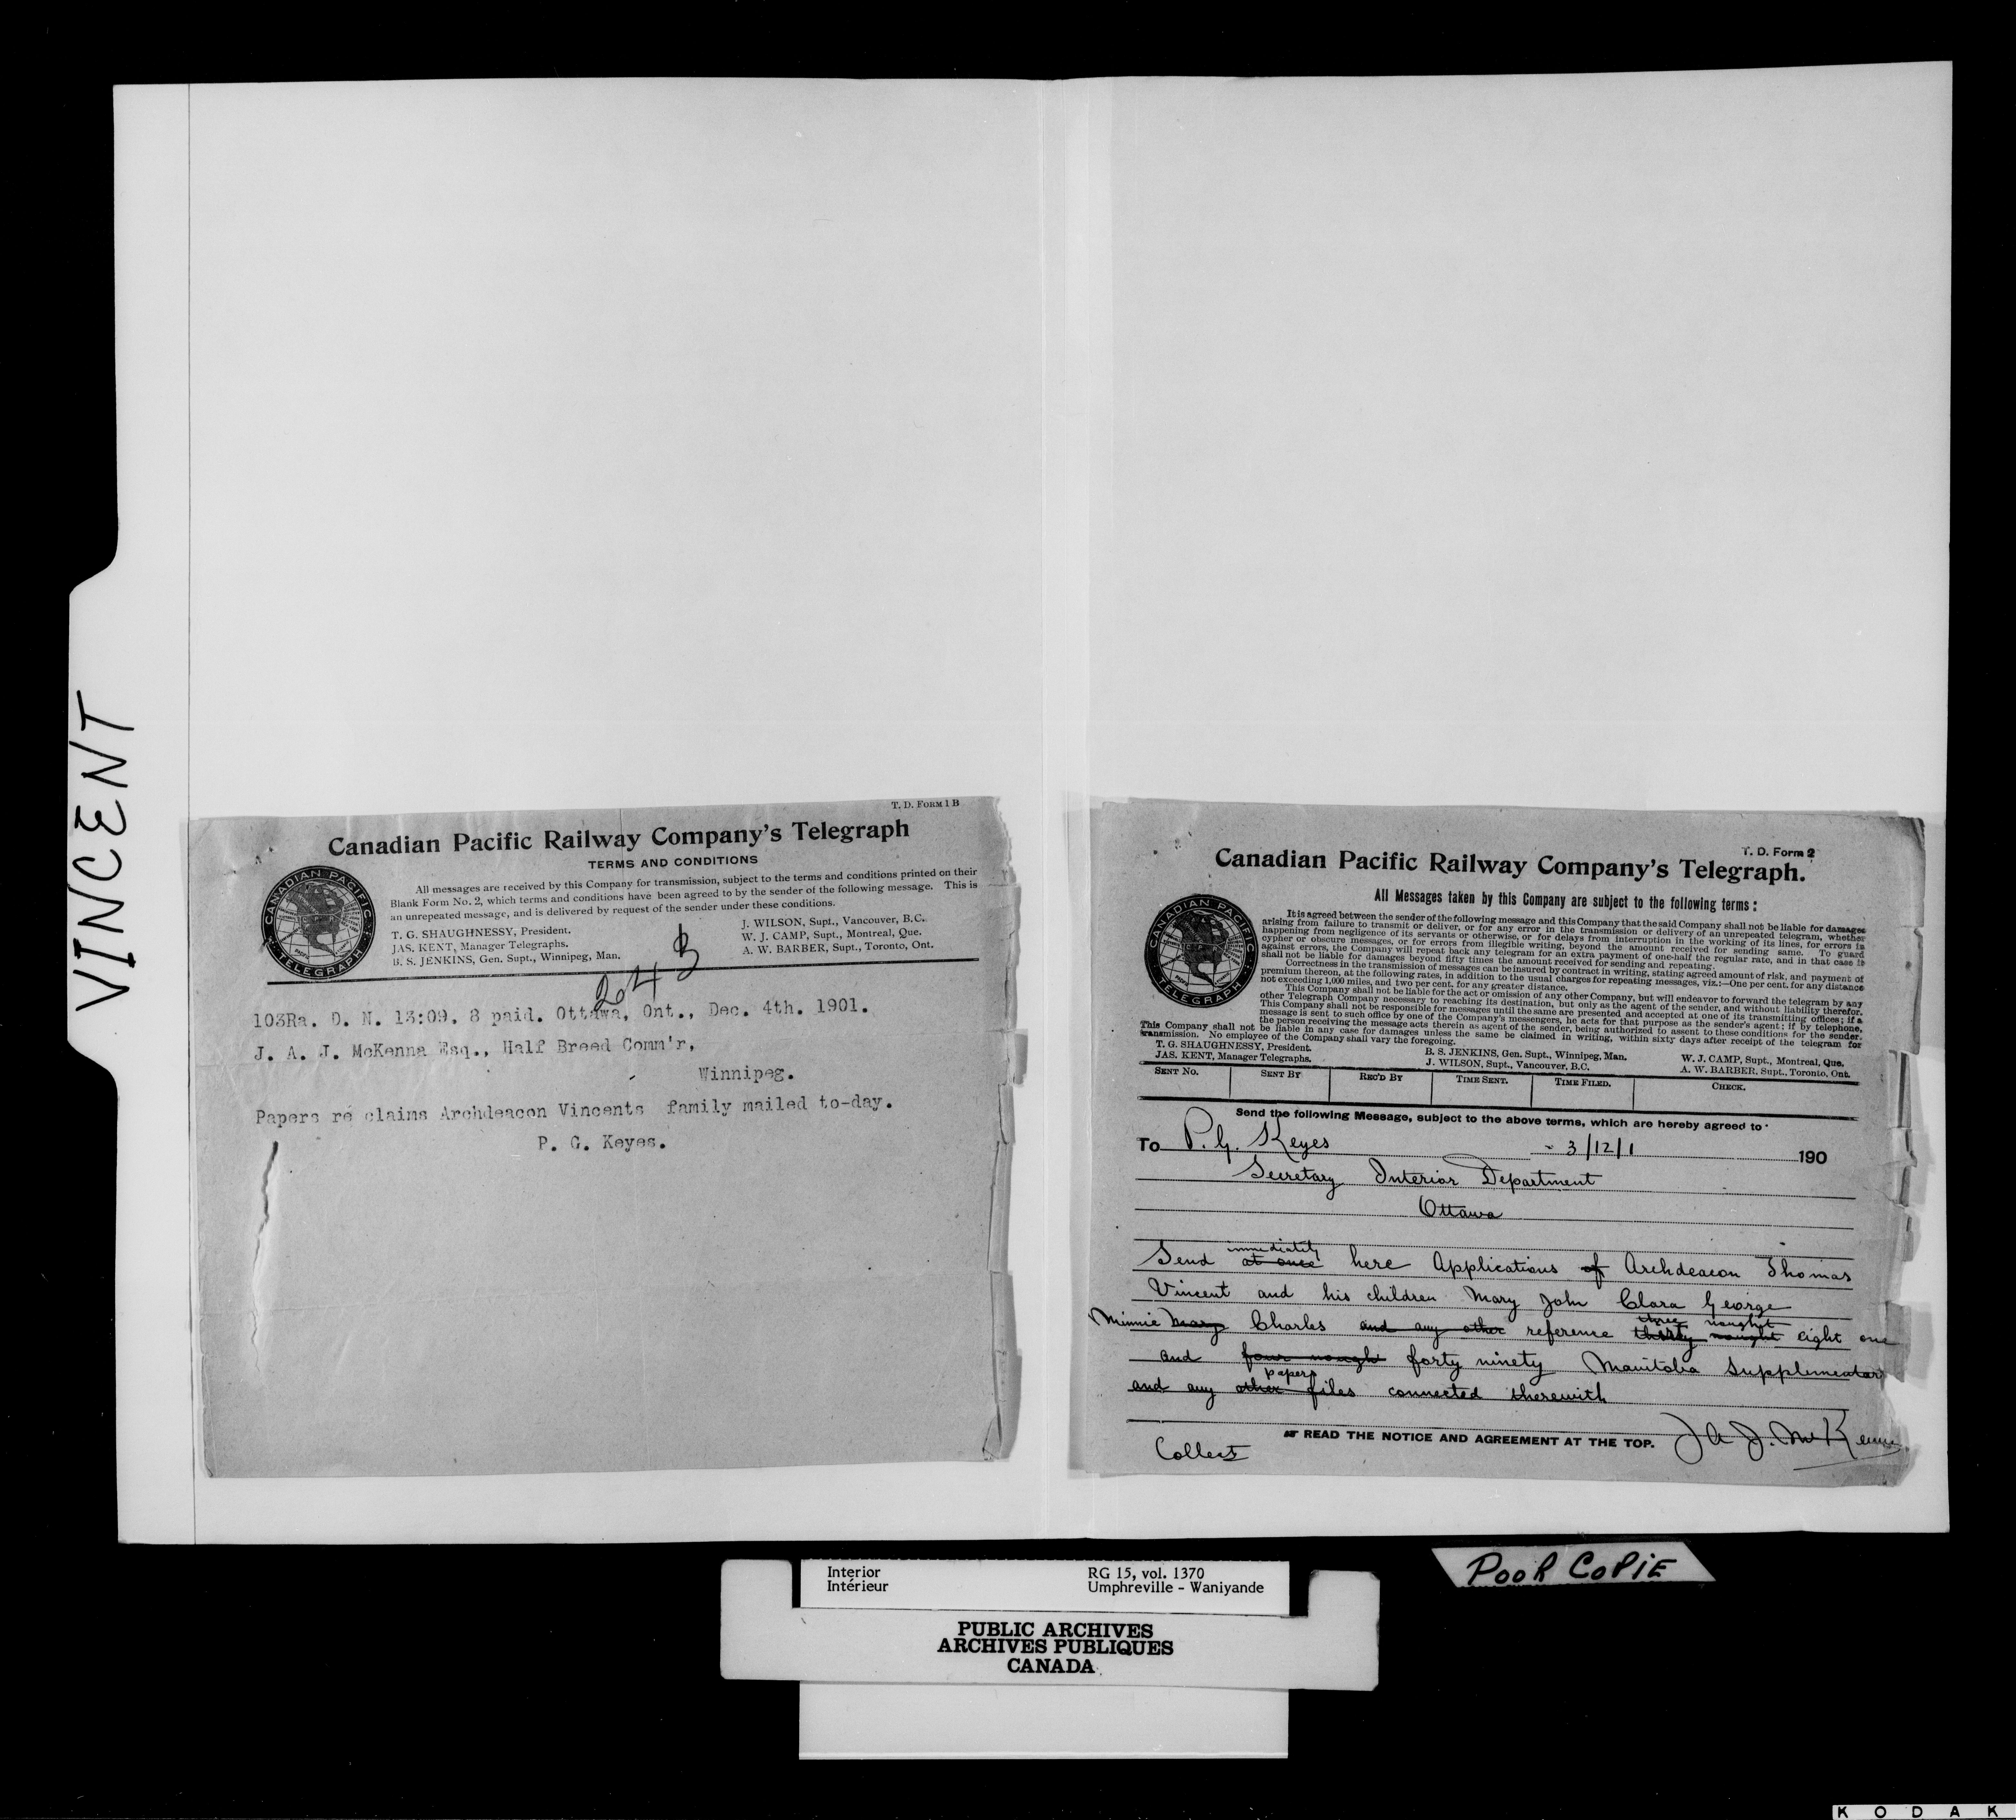 VINCENT
T. D. FORM 1 B
Canadian Pacific Railway Company's Telegraph
TERMS AND CONDITIONS
All messages are received by this Company for transmission, subject to the terms and conditions printed on their
Blank Form No. 2, which terms and conditions have been agreed to by the sender of the following message. This is
an unrepeated message, and is delivered by request of the sender under these conditions.
CANADIAN PACIFIC
TELEGRAPH
T. G. SHAUGHNESSY, President.
JAS. KENT, Manager Telegraphs.
B. S. JENKINS, Gen. Supt., Winnipeg, Man.
J. WILSON, Supt., Vancouver, B.C.
W. J. CAMP, Supt., Montreal, Que.
A. W. BARBER, Supt., Toronto, Ont.
103Ra. D. N. 13:09. 8 paid. Ottawa, Ont., Dec. 4th. 1901.
J. A. J. McKenna Esq., Half Breed Comm'r,
Winnipeg.
Papers re claims Archdeacon Vincents family mailed to-day.
P. G. Keyes.
T. D. Form 2
Canadian Pacific Railway Company's Telegraph.
All Messages taken by this Company are subject to the following terms:
CANADIAN PACIFIC
TELEGRAPH
It is agreed between the sender of the following message and this Company that the said Company shall not be liable for damages
arising from failure to transmit or deliver, or for any error in the transmission or delivery of an unrepeated telegram, whether
happening from negligence of its servants or otherwise, or for delays from interruption in the working of its lines, for errors in
cypher or obscure messages, or for errors from illegible writing, beyond the amount received for sending same. To guard
against errors, the Company will repeat back any telegram for an extra payment of one-half the regular rate, and in that case it
shall not be liable for damages beyond fifty times the amount received for sending and repeating.
Correctness in the transmission of messages can be insured by contract in writing, stating agreed amount of risk, and payment of
premium thereon, at the following rates, in addition to the usual charges for repeating messages, viz.:—One per cent. for any distance
not exceeding 1,000 miles, and two per cent. for any greater distance.
This Company shall not be liable for the act or omission of any other Company, but will endeavor to forward the telegram by any
other Telegraph Company necessary to reaching its destination, but only as the agent of the sender, and without liability therefor.
This Company shall not be responsible for messages until the same are presented and accepted at one of its transmitting offices; if a
message is sent to such office by one of the Company's messengers, he acts for that purpose as the sender's agent; if by telephone,
the person receiving the message acts therein as agent of the sender, being authorized to assent to these conditions for the sender.
This Company shall not be liable in any case for damages unless the same be claimed in writing, within sixty days after receipt of the telegram for
transmission. No employee of the Company shall vary the foregoing.
T. G. SHAUGHNESSY, President.
JAS. KENT, Manager Telegraphs.
B. S. JENKINS, Gen. Supt., Winnipeg, Man.
J. WILSON, Supt., Vancouver, B.C.
W. J. CAMP, Supt., Montreal, Que.
A. W. BARBER, Supt., Toronto, Ont.
SENT NO. SENT BY REC'D BY TIME SENT. TIME FILED. CHECK.
Send the following Message, subject to the above terms, which are hereby agreed to
To P. G. Keyes 3/12/1 190
Secretary Interior Department
Ottawa
immediately
Send at once here Applications of Archdeacon Thomas
Vincent and his children Mary John Clara George
three nought
Minnie Mary Charles and any other reference thirty nought eight one
and four nough forty ninety Manitoba Supplementary
papers
and any other files connected therewith
READ THE NOTICE AND AGREEMENT AT THE TOP.
J A J. McKenna
Collect
POOR COPIE
Interior
Intérieur
RG 15, vol. 1370
Umphreville - Waniyande
PUBLIC ARCHIVES
ARCHIVES PUBLIQUES
CANADA
KODAK